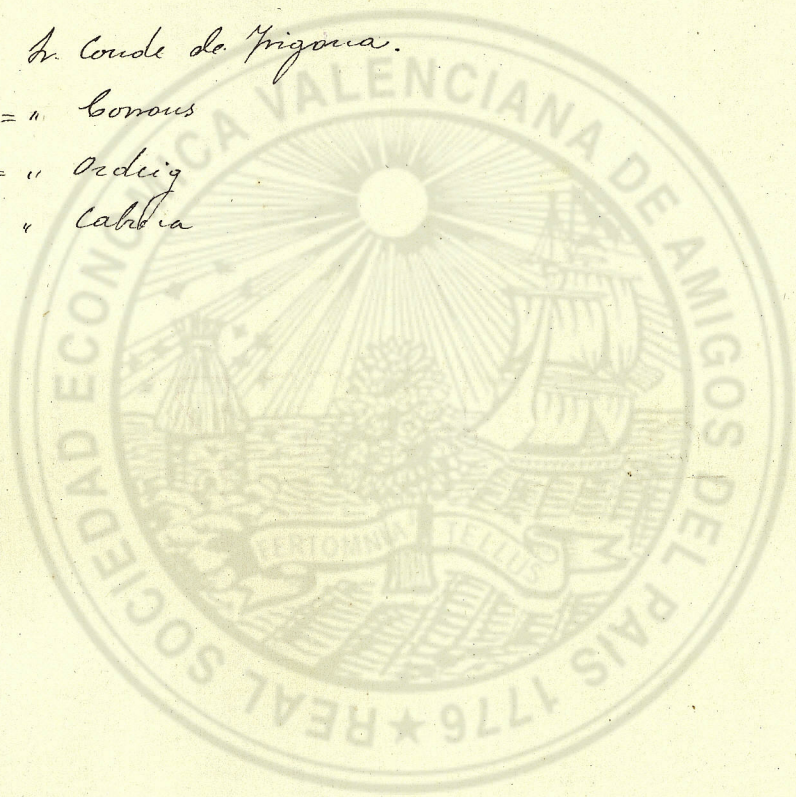 Sr. Conde de Trigona.
= " Comous
= " Ordeig
" Cabrera
REAL SOCIEDAD ECONOMICA VALENCIANA DE AMIGOS DEL PAIS 1776 ★
FERT OMNIA TELLUS